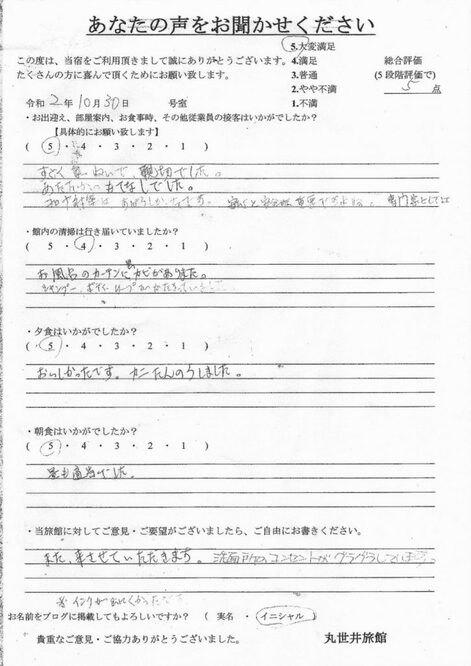 あなたの声をお聞かせください
この度は、当宿をご利用頂きまして誠にありがとうございます。
たくさんの方に喜んで頂くためにお願い致します。
5.大変満足
4.満足
3.普通
2.やや不満
1.不満
総合評価
(5段階評価で)
5 点
令和 2年 10月 30日 号室
・お出迎え、部屋案内、お食事時、その他従業員の接客はいかがでしたか?
【具体的にお願い致します】
( 5 ・ 4 ・ 3 ・ 2 ・ 1 )
すごく ていねいで、親切でした。
おもてなしでした。
・館内の清掃は行き届いていましたか?
( 5 ・ 4 ・ 3 ・ 2 ・ 1 )
お風呂のカーテンにカビがありました。
シャンプー、ボディソープ
・夕食はいかがでしたか?
( 5 ・ 4 ・ 3 ・ 2 ・ 1 )
おいしかったです。カニたんのうしました。
・朝食はいかがでしたか?
( 5 ・ 4 ・ 3 ・ 2 ・ 1 )
量も適当でした。
・当旅館に対してご意見・ご要望がございましたら、ご自由にお書きください。
また、来させていただきます。 洗面所のコンセントがグラグラしています。
※インクが出にくかったです
お名前をブログに掲載してもよろしいですか? ( 実名 ・ イニシャル )
貴重なご意見・ご協力ありがとうございました。 丸世井旅館